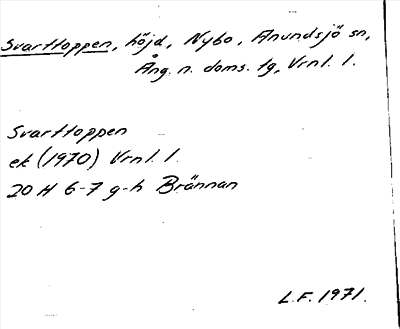 Svarttoppen, höjd, Nybo, Anundsjö sn,
Ång. n. doms. tg, Vrnl. 1.
Svarttoppen
ek (1970) Vrnl. 1.
20 H 6-7 g-h Brännan
L.F. 1971.